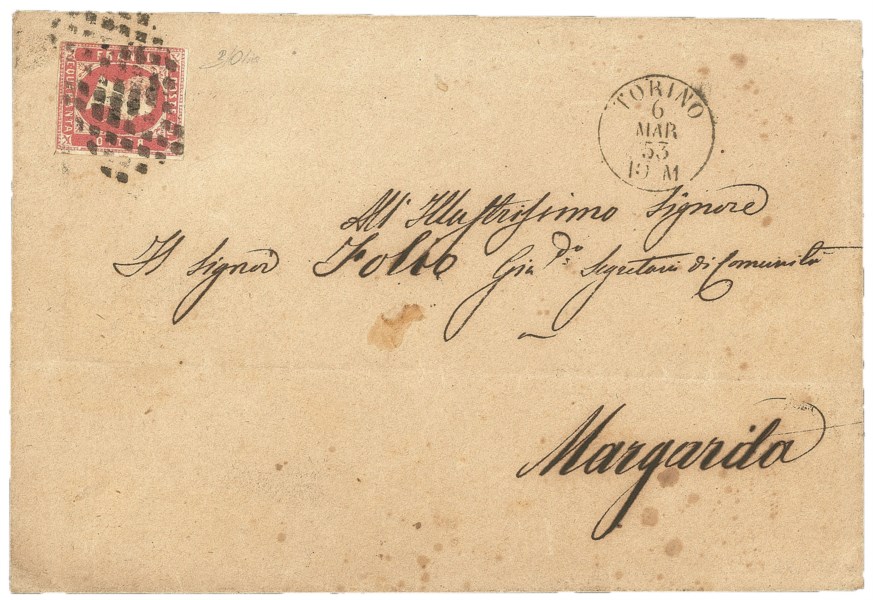 C. QUARANTA
TORINO
6
MAR
53
10 M
All' Illustrissimo Signore
Il Signor Folio Gia. Do Segretario di Comunità
Margarita